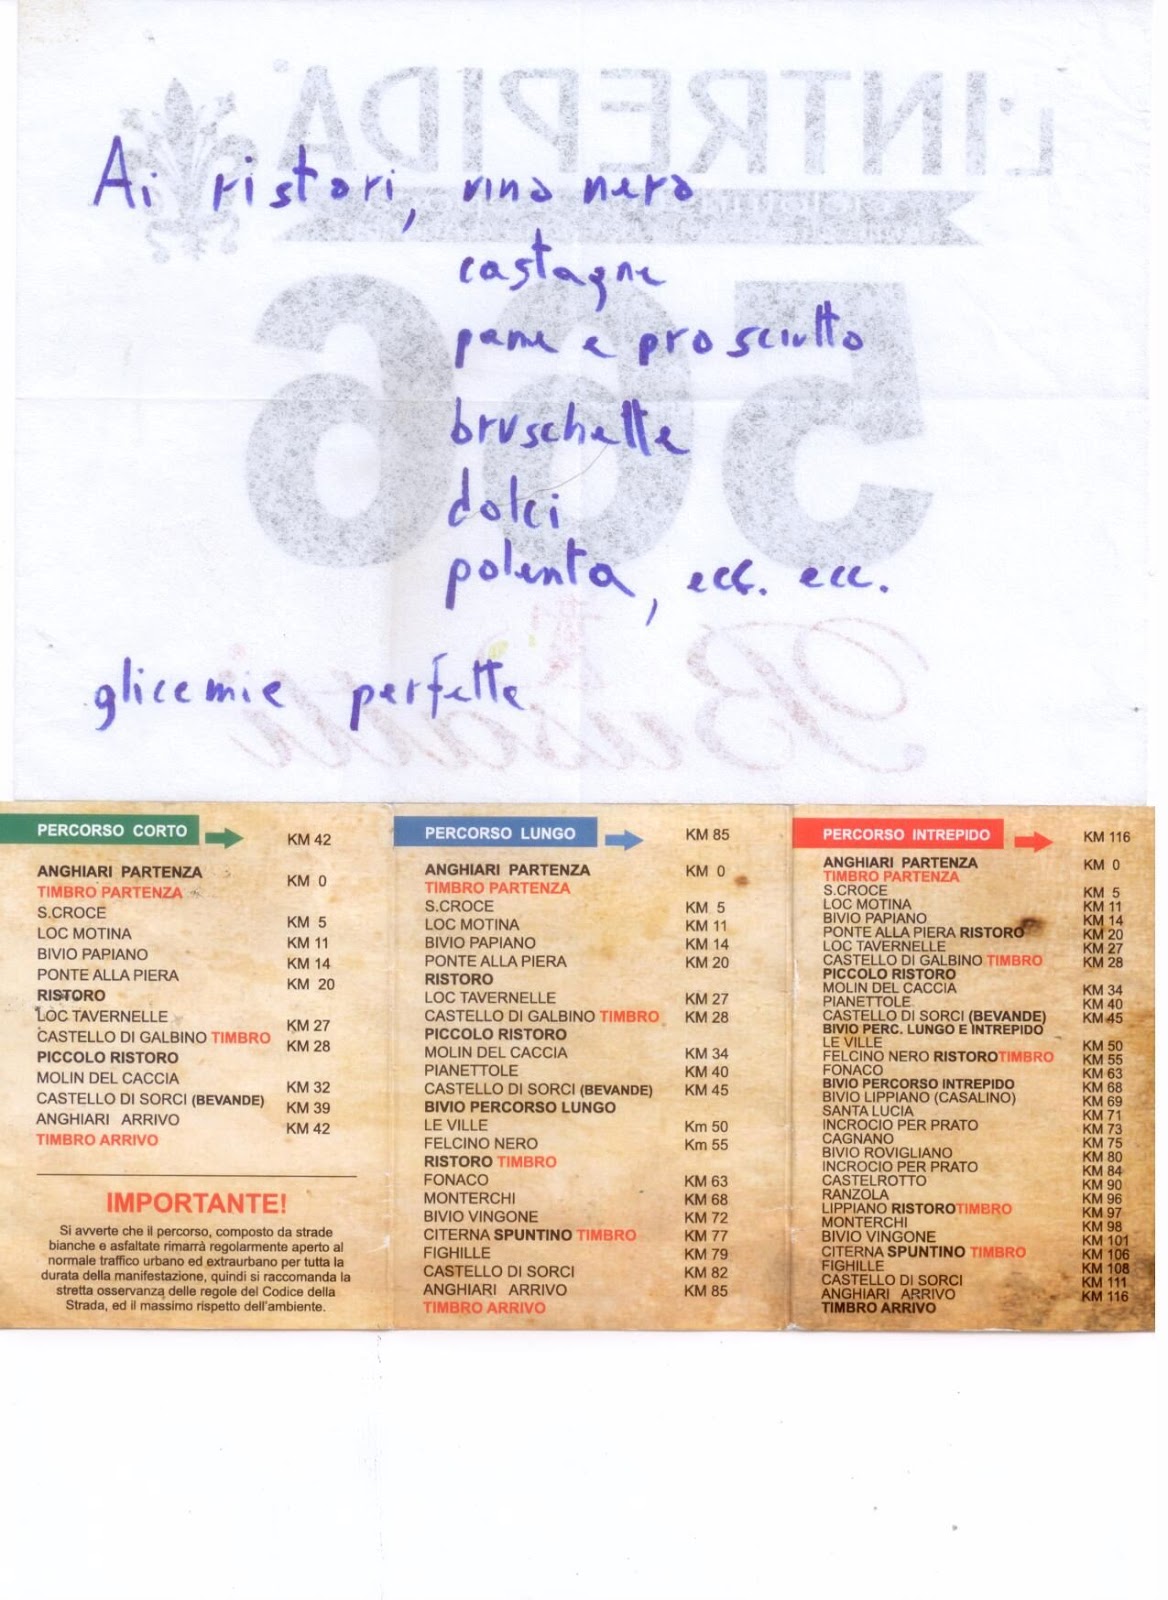 L'INTREPIDA
566
Ai ristori, vino nero
castagne
pane e prosciutto
bruschette
dolci
polenta, ecc. ecc.
glicemie perfette
PERCORSO CORTO KM 42
ANGHIARI PARTENZA KM 0
TIMBRO PARTENZA
S.CROCE KM 5
LOC MOTINA KM 11
BIVIO PAPIANO KM 14
PONTE ALLA PIERA KM 20
RISTORO
LOC TAVERNELLE KM 27
CASTELLO DI GALBINO TIMBRO KM 28
PICCOLO RISTORO
MOLIN DEL CACCIA KM 32
CASTELLO DI SORCI (BEVANDE) KM 39
ANGHIARI ARRIVO KM 42
TIMBRO ARRIVO
IMPORTANTE!
Si avverte che il percorso, composto da strade
bianche e asfaltate rimarrà regolarmente aperto al
normale traffico urbano ed extraurbano per tutta la
durata della manifestazione, quindi si raccomanda la
stretta osservanza delle regole del Codice della
Strada, ed il massimo rispetto dell'ambiente.
PERCORSO LUNGO KM 85
ANGHIARI PARTENZA KM 0
TIMBRO PARTENZA
S.CROCE KM 5
LOC MOTINA KM 11
BIVIO PAPIANO KM 14
PONTE ALLA PIERA KM 20
RISTORO
LOC TAVERNELLE KM 27
CASTELLO DI GALBINO TIMBRO KM 28
PICCOLO RISTORO
MOLIN DEL CACCIA KM 34
PIANETTOLE KM 40
CASTELLO DI SORCI (BEVANDE) KM 45
BIVIO PERCORSO LUNGO
LE VILLE Km 50
FELCINO NERO Km 55
RISTORO TIMBRO
FONACO KM 63
MONTERCHI KM 68
BIVIO VINGONE KM 72
CITERNA SPUNTINO TIMBRO KM 77
FIGHILLE KM 79
CASTELLO DI SORCI KM 82
ANGHIARI ARRIVO KM 85
TIMBRO ARRIVO
PERCORSO INTREPIDO KM 116
ANGHIARI PARTENZA KM 0
TIMBRO PARTENZA
S.CROCE KM 5
LOC MOTINA KM 11
BIVIO PAPIANO KM 14
PONTE ALLA PIERA RISTORO KM 20
LOC TAVERNELLE KM 27
CASTELLO DI GALBINO TIMBRO KM 28
PICCOLO RISTORO
MOLIN DEL CACCIA KM 34
PIANETTOLE KM 40
CASTELLO DI SORCI (BEVANDE) KM 45
BIVIO PERC. LUNGO E INTREPIDO
LE VILLE KM 50
FELCINO NERO RISTOROTIMBRO KM 55
FONACO KM 63
BIVIO PERCORSO INTREPIDO KM 68
BIVIO LIPPIANO (CASALINO) KM 69
SANTA LUCIA KM 71
INCROCIO PER PRATO KM 73
CAGNANO KM 75
BIVIO ROVIGLIANO KM 80
INCROCIO PER PRATO KM 84
CASTELROTTO KM 90
RANZOLA KM 96
LIPPIANO RISTOROTIMBRO KM 97
MONTERCHI KM 98
BIVIO VINGONE KM 101
CITERNA SPUNTINO TIMBRO KM 106
FIGHILLE KM 108
CASTELLO DI SORCI KM 111
ANGHIARI ARRIVO KM 116
TIMBRO ARRIVO